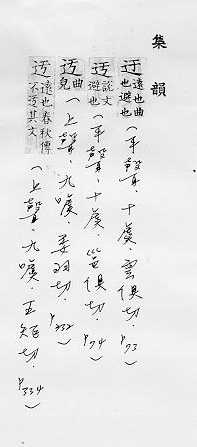 集韻
迂 遠也曲也避也（平聲．十虞．雲俱切．P73）
迃 說文避也（平聲．十虞．邕俱切．P74）
迃 曲皃（上聲．九噳．委羽切．P332）
迃 遠也春秋傳不迃其文（上聲．九噳．五矩切．P334）